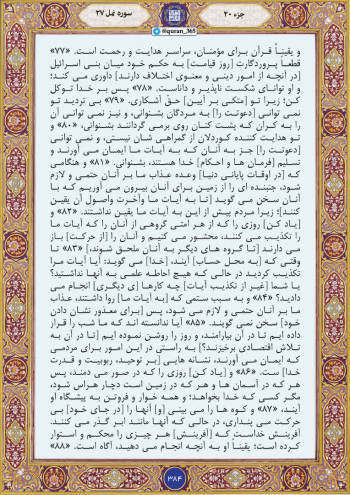 جزء ۲۰
سوره نمل ۲۷
@quran_365
و یقیناً قرآن برای مؤمنان، سراسر هدایت و رحمت است. «۷۷»
قطعاً پروردگارت [روز قیامت] به حکم خود میان بنی اسرائیل
[در آنچه از امور دینی و معنوی اختلاف دارند] داوری می کند؛
و او توانای شکست ناپذیر و داناست. «۷۸» پس بر خدا توکل
کن؛ زیرا تو [متکی بر آیین] حقِّ آشکاری. «۷۹» بی تردید تو
نمی توانی [دعوتت را] به مردگان بشنوانی، و نیز نمی توانی آن
را به کران که پشت کنان روی برمی گردانند بشنوانی، «۸۰» و
تو هدایت کننده کوردلان از گمراهی شان نیستی، و نمی توانی
[دعوتت را] جز به آنان که به آیات ما ایمان می آورند و
تسلیم [فرمان ها و احکام] خدا هستند، بشنوانی. «۸۱» و هنگامی
که [در اوقات پایانی دنیا] وعده عذاب ما بر آنان حتمی و لازم
شود، جنبنده ای را از زمین برای آنان بیرون می آوریم که با
آنان سخن می گوید [تا به آیات ما و آخرت واصول آن یقین
کنند]؛ زیرا مردم پیش از این به آیات ما یقین نداشتند. «۸۲» و
[یاد کن] روزی را که از هر امتی گروهی از آنان را که آیات ما
را تکذیب می کنند، محشور می کنیم و آنان را [از حرکت] باز
می دارند [تا گروه های دیگر به آنان ملحق شوند]، «۸۳» تا
وقتی که [به محل حساب] آیند، [خدا] می گوید: آیا آیات مرا
تکذیب کردید در حالی که هیچ احاطه علمی به آنها نداشتید؟
یا شما [غیر از تکذیب آیات] چه کارها [ی دیگری] انجام می
دادید؟ «۸۴» و به سبب ستمی که [به آیات ما] روا داشتند، عذاب
ما بر آنان حتمی و لازم می شود، پس [برای معذور نشان دادن
خود] سخن نمی گویند. «۸۵» آیا ندانسته اند که ما شب را قرار
داده ایم تا در آن بیارامند، و روز را روشن نموده ایم [تا در آن به
تلاش اقتصادی برخیزند؟] به راستی در این امور برای مردمی
که ایمان می آورند، نشانه هایی [بر توحید، ربوبیت و قدرت
خدا] ست. «۸۶» و [یاد کن] روزی را که در صور می دمند، پس
هر که در آسمان ها و هر که در زمین است دچار هراس شود،
مگر کسی که خدا بخواهد؛ و همه خوار و فروتن به پیشگاه او
آیند، «۸۷» و کوه ها را می بینی [و] آنها را [در جای خود] بی
حرکت می پنداری، در حالی که آنها مانند ابر گذر می کنند.
آفرینش خداست که [آفرینش] هر چیزی را محکم و استوار
کرده است؛ یقیناً او به آنچه انجام می دهید، آگاه است. «۸۸»
۳۸۴